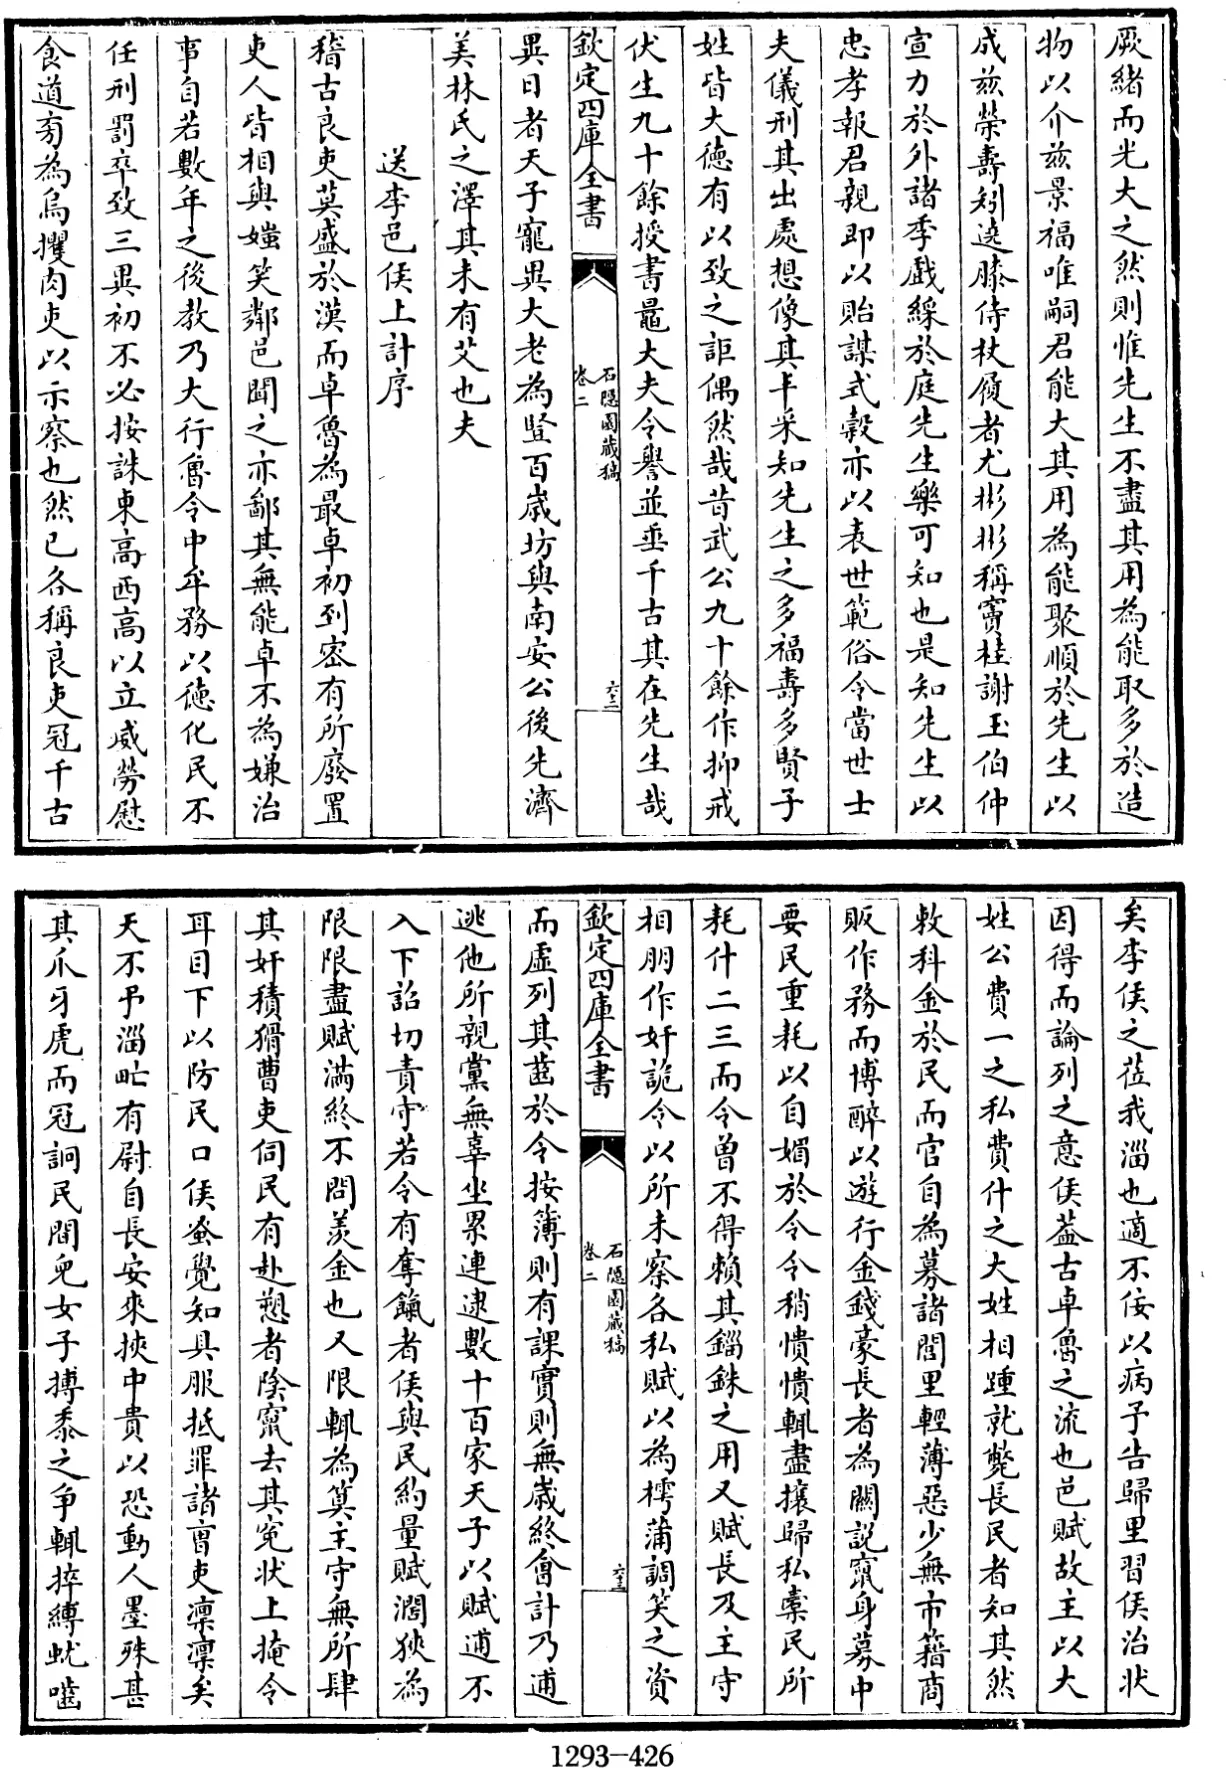 厥緒而光大之然則惟先生不盡其用為能取多於造
物以介兹景福唯嗣君能大其用為能聚順於先生以
成兹榮壽矧遶膝侍杖履者尤彬彬稱竇桂謝玉伯仲
宣力於外諸季戲綵於庭先生樂可知也是知先生以
忠孝報君親即以貽謀式榖亦以表世範俗令當世士
夫儀刑其出處想像其丰采知先生之多福壽多賢子
姓皆大徳有以致之詎偶然哉昔武公九十餘作抑戒
伏生九十餘授書鼂大夫令譽並垂千古其在先生哉
欽定四庫全書
石隠園藏稿
卷二
六二
異日者天子寵異大老為豎百嵗坊與南安公後先濟
美林氏之澤其未有艾也夫
送李邑侯上計序
稽古良吏莫盛於漢而卓魯為最卓初到宻有所廢置
吏人皆相與蚩笑鄰邑聞之亦鄙其無能卓不為嫌治
事自若數年之後教乃大行魯令中牟務以徳化民不
任刑罰卒致三異初不必按誅東高西高以立威勞慰
食道旁為烏攫肉吏以示察也然已各稱良吏冠千古
矣李侯之莅我淄也適不佞以病予告歸里習侯治狀
因得而論列之意侯葢古卓魯之流也邑賦故主以大
姓公費一之私費什之大姓相踵就斃長民者知其然
敕科金於民而官自為募諸閭里輕薄惡少無市籍商
販作務而博醉以遊行金錢豪長者為關説竄身募中
要民重耗以自媚於令令稍憒憒輒盡攘歸私槖民所
耗什二三而令曾不得賴其錙銖之用又賦長及主守
相朋作奸詭令以所未察各私賦以為樗蒲調笑之資
欽定四庫全書
石隠園藏稿
卷二
六三
而虛列其菑於令按簿則有課實則無嵗終會計乃逋
逃他所親黨無辜坐累連逮數十百家天子以賦逋不
入下詔切責守若令有奪餼者侯與民約量賦濶狹為
限限盡賦滿終不問羨金也又限輒為筭主守無所肆
其奸積猾曹吏伺民有赴愬者陰竄去其寃狀上掩令
耳目下以防民口侯蚤覺知具服抵罪諸曹吏凛凛矣
天不弔淄甿有尉自長安來挾中貴以恐動人墨殊甚
其爪牙虎而冠詗民間兒女子搏黍之争輒捽縛蚘嚙
1293-426